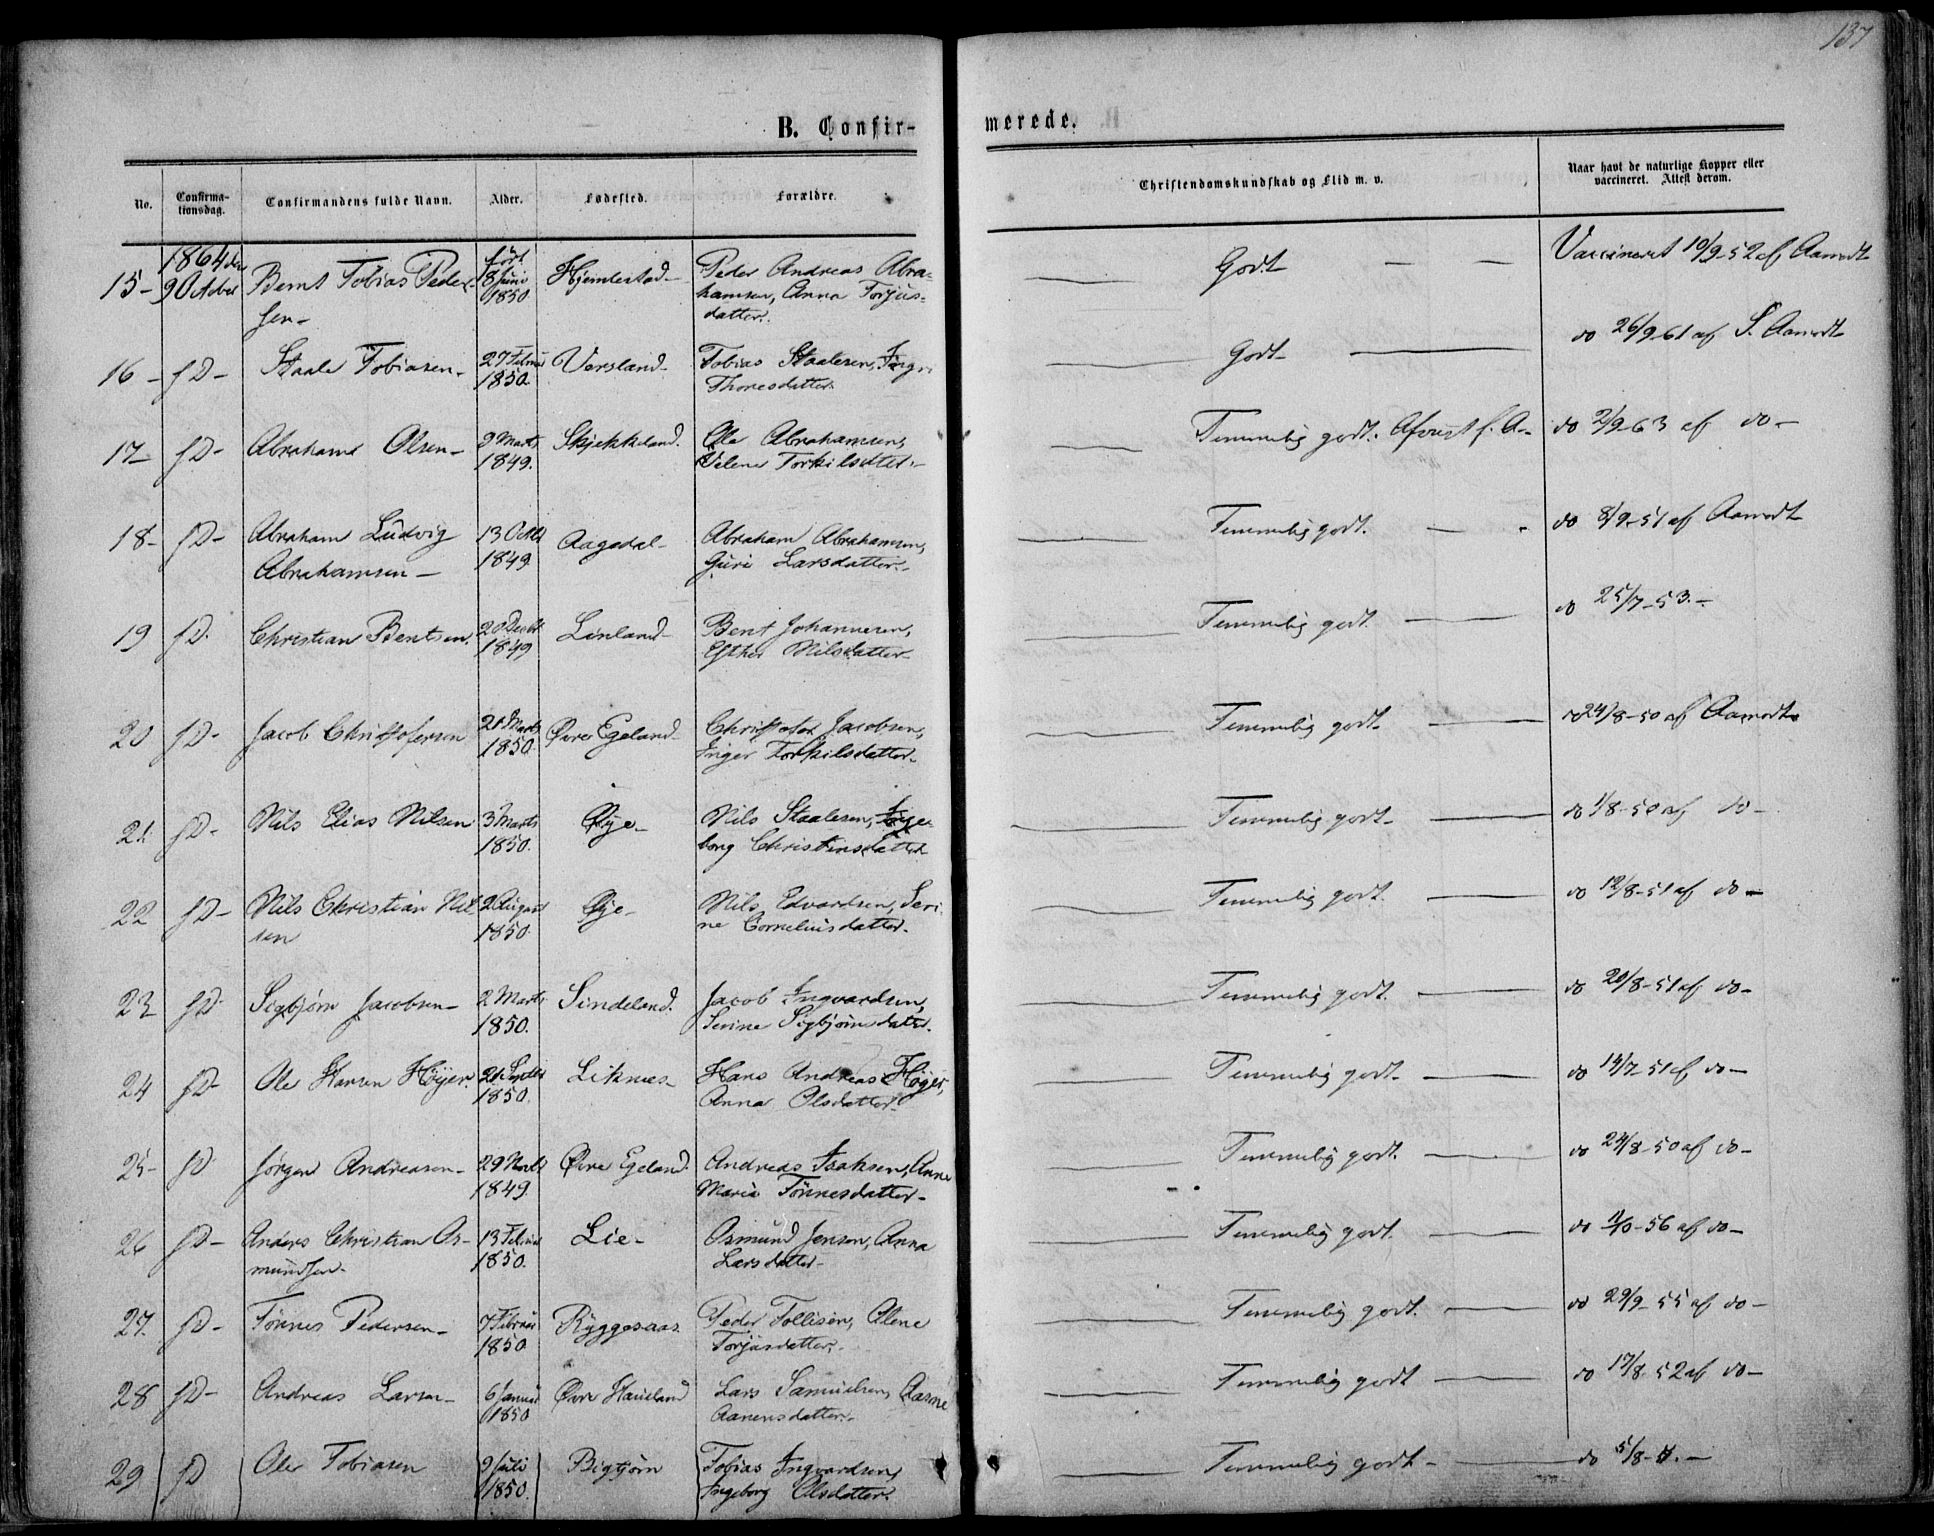 137
B. Confirmerede.
No.
Confirmationsdag.
Confirmandens fulde Navn.
Alder.
Fødested.
Forældre.
Christendomskundskab og Flid m. v.
Naar havt de naturlige Kopper eller
vaccineret. Attest derom.
1864 den født
15- 9 October Bernt Tobias Peder- 8 Juni Hjemlestad- Peder Andreas Abra- Godt — — Vaccineret 10/9-52 af Aamodt
sen- 1850 hamsen, Anna Torjus-
datter.
16- fD- Staale Tobiasen- 27 Februar Versland- Tobias Staalesen, Ingri Godt — do 26/9-61 af S. Aamodt
1850. Thoresdatter.
17- fD- Abraham Olsen- 9 Marts Skjekkeland. Ole Abrahamsen, Temmelig godt. do 2/9-63 af do-
1849. Torkilsdtter-
18- fD- Abraham Ludvig 13 Octbr Aagedal- Abraham Abrahamsen, Temmelig godt. — - do 8/9-51 af Aamodt
Abrahamsen- 1849. Guri Larsdatter.-
19 fD. Christian Bentsen. 20 Decbr Linland- Bent Johannesen, Temmelig godt. — do 25/7-53.-
1849 Esther Nilsdatter-
20 fD- Jacob Christofersen 21 Marts Øvre Egeland- Christofer Jacobsen, Temmelig godt. — do 24/8-50 af Aamodt
1850. Inger Torkilsdatter-
21 fD- Nils Elias Nilsen 3 Marts Øye- Nils Staalesen, Inge- Temmelig godt. — do 1/8-50 af do-
1850. borg Christensdatter
22 fD- Nils Christian Nil- 2 August Øye- Nils Edvardsen, Seri- Temmelig godt. — do 12/8-51 af do-
sen 1850. ne Corneliusdatter.
23 fD- Sigbjørn Jacobsen- 2 Marts Sindeland. Jacob Ingvardsen, Temmelig godt. — do 20/8-51 af do-
1850. Serine Sigbjørnsdatter.
24 fD- Ole Hansen Höyer. 21 Septbr Liknes- Hans Andreas Høyer, Temmelig godt. — do 14/7-51 af do-
1850. Anna Olsdatter-
25- fD Jørgen Andreasen- 29 Novbr Øvre Egeland. Andreas Isaksen, Anne Temmelig godt. — do 24/8-50 af do-
1849. Maria Tönnesdatter-
26 fD- Anders Christian As- 13 Februar Lie- Asmund Jensen, Anna Temmelig godt. — do -56 af do-
mundsen- 1850. Larsdatter-
27. fD- Tønnes Pedersen- 7 Februar Ryggesaas. Peder Tollisen, Alene Temmelig godt. — do 29/9-55 af do-
1850 Torjusdatter.-
28 fD- Andreas Larsen- 6 Januar Øvre Haueland Lars Samuelsen, Aasne Temmelig godt — do 17/8-52 af do-
1850 Aanensdatter.-
29 fD Ole Tobiasen 9 Juli Bigtjørn Tobias Ingvardsen, Temmelig godt- — do 5/8-
1850. Ingeborg Olsdatter.